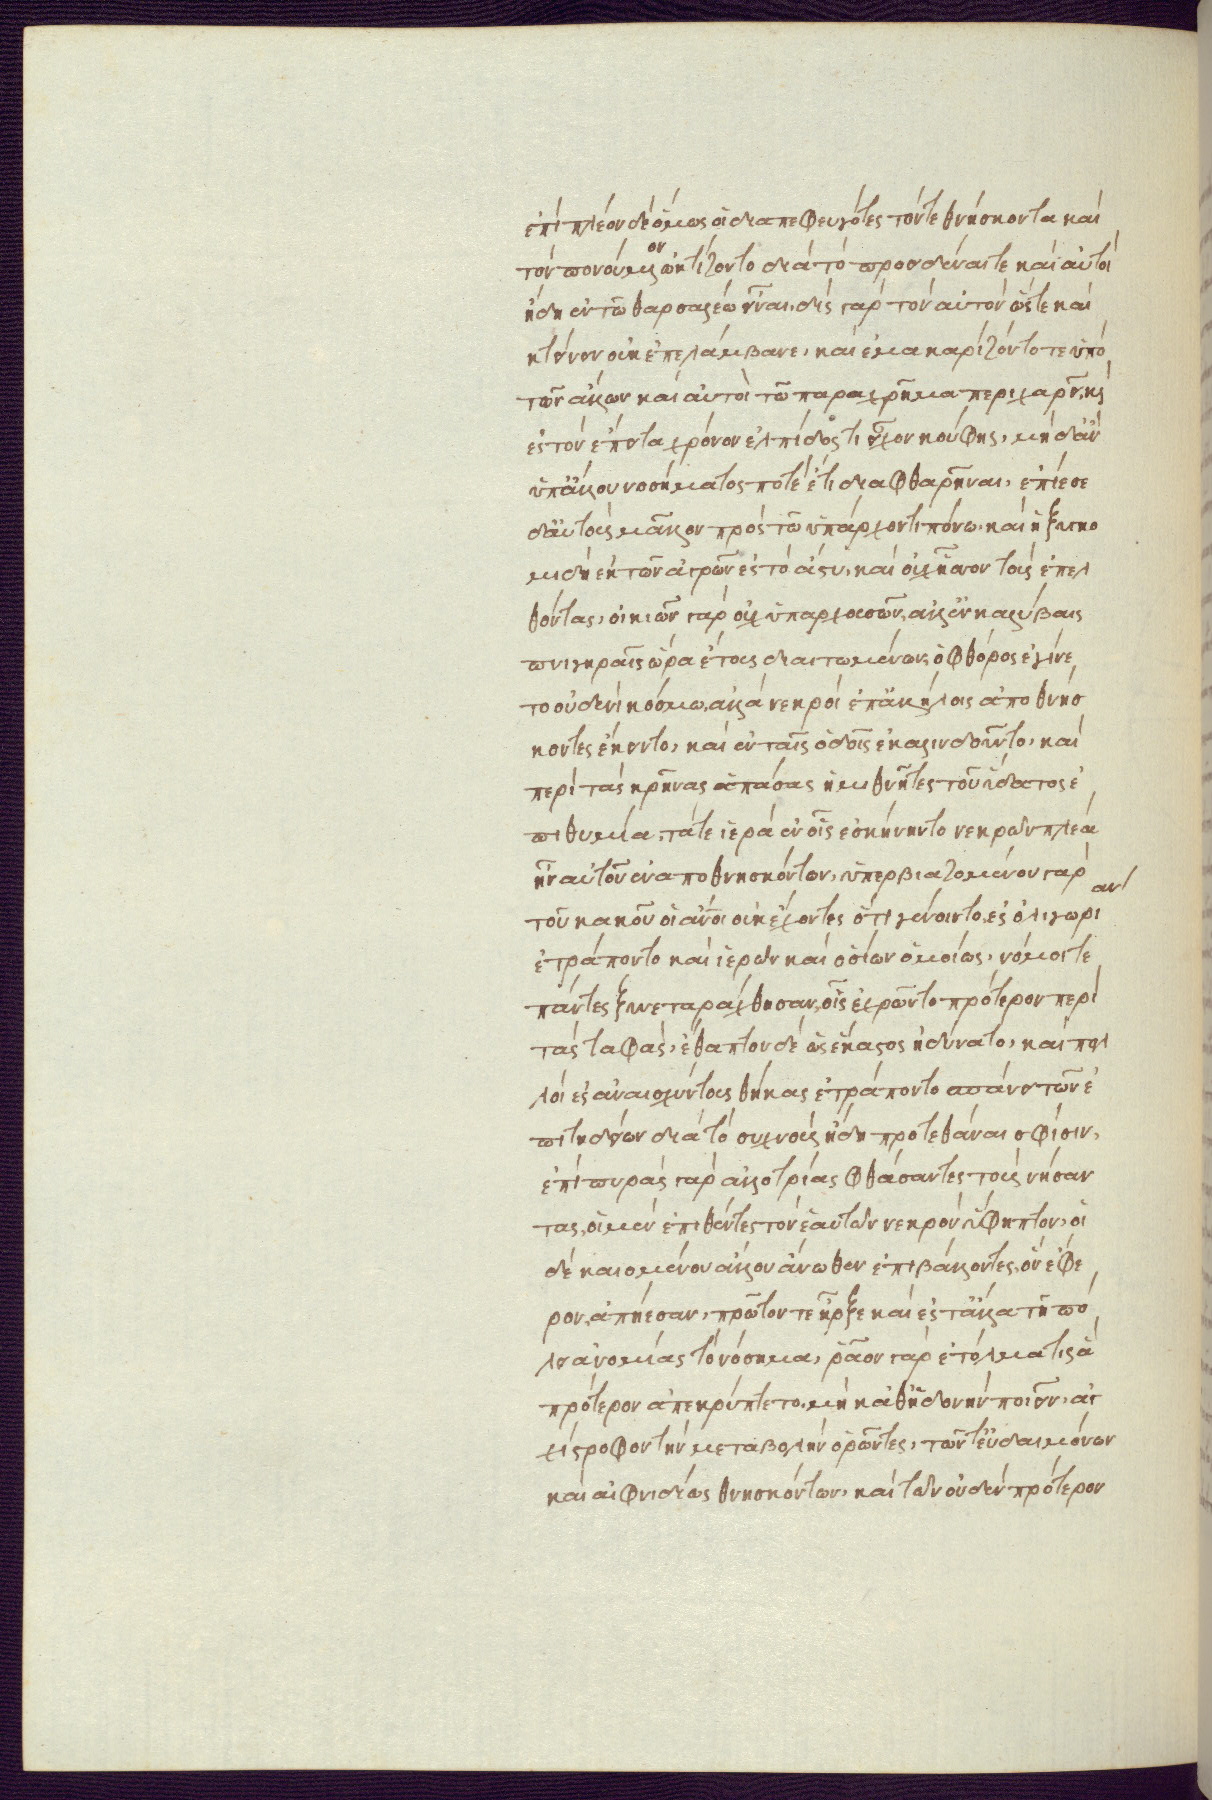 ἐπὶ πλέον δὲ ὅμως οἱ διαπεφευγότες τόν τε θνήσκοντα καὶ
τὸν πονούμενον ᾠκτίζοντο διὰ τὸ προειδέναι τε καὶ αὐτοὶ
ἤδη ἐν τῶ θαρσαλέω εἶναι, δὶς γὰρ τὸν αὐτὸν ὥστε καὶ
κτείνειν οὐκ ἐπελάμβανε, καὶ ἐμακαρίζοντό τε ὑπὸ
τῶν ἄλλων καὶ αὐτοὶ τῶ παραχρῆμα περιχαρεῖ, καὶ
ἐς τὸν ἔπειτα χρόνον ἐλπίδος τι εἶχον κούφης, μηδ' ἂν
ὑπ' ἄλλου νοσήματός ποτε ἔτι διαφθαρῆναι, ἐπίεσε
δ' αὐτοὺς μᾶλλον πρὸς τῶ ὑπάρχοντι πόνω καὶ ἡ ξυγκο
μιδὴ ἐκ τῶν ἀγρῶν ἐς τὸ ἄστυ, καὶ οὐχ ἧσσον τοὺς ἐπελ
θόντας, οἰκιῶν γὰρ οὐχ ὑπαρχουσῶν, ἀλλ' ἐν καλύβαις
πνιγηραῖς ὥρα ἔτους διαιτωμένων, ὁ φθόρος ἐγίνε
το οὐδενὶ κόσμω, ἀλλὰ νεκροὶ ἐπ' ἀλλήλοις ἀποθνήσ
κοντες ἔκειντο, καὶ ἐν ταῖς ὁδοῖς ἐκαλινδοῦντο, καὶ
περὶ τὰς κρήνας ἁπάσας ἡμιθνῆτες τοῦ ὕδατος ἐ
πιθυμία, τά τε ἱερὰ ἐν οἷς ἐσκήνηντο νεκρῶν πλέα
ἦν αὐτοῦ ἐναποθνησκόντων, ὑπερβιαζομένου γὰρ
τοῦ κακοῦ οἱ ἄνοι οὐκ ἔχοντες ὅτι γένοιντο, ἐς ὀλιγωρίαν
ἐτράποντο καὶ ἱερῶν καὶ ὁσίων ὁμοίως, νόμοι τε
πάντες ξυνεταράχθησαν, οἷς ἐχρῶντο πρότερον περὶ
τὰς ταφάς, ἔθαπτον δὲ ὡς ἕκαστος ἠδύνατο, καὶ πολ
λοὶ ἐς ἀναισχύντους θήκας ἐτράποντο σπάνει τῶν ἐ
πιτηδείων διὰ τὸ συχνοὺς ἤδη προτεθάναι σφίσιν,
ἐπὶ πυρὰς γὰρ ἀλλοτρίας φθάσαντες τοὺς νήσαν
τας, οἱ μὲν ἐπιθέντες τὸν ἑαυτῶν νεκρὸν ὑφῆπτον, οἱ
δὲ καιομένου ἄλλου ἄνωθεν ἐπιβάλλοντες, ὃν ἔφε
ρον, ἀπήεσαν, πρῶτόν τε ἦρξε καὶ ἐς τἄλλα τῆ πό
λει ἀνομίας τὸ νόσημα, ῥᾶον γὰρ ἐτόλμα τὶς ἃ
πρότερον ἀπεκρύπτετο, μὴ καθ' ἡδονὴν ποιεῖν, ἀγ
χίστροφον τὴν μεταβολὴν ὁρῶντες, τῶν τ' εὐδαιμόνων
καὶ αἰφνιδίως θνησκόντων, καὶ τῶν οὐδὲν πρότερον